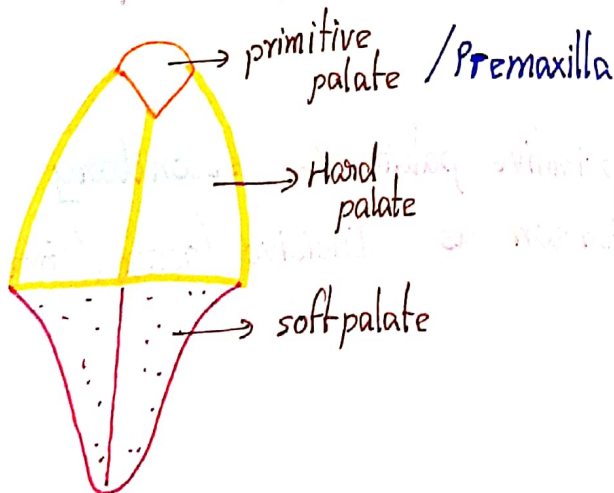 primitive palate /Premaxilla
Hard palate
soft palate